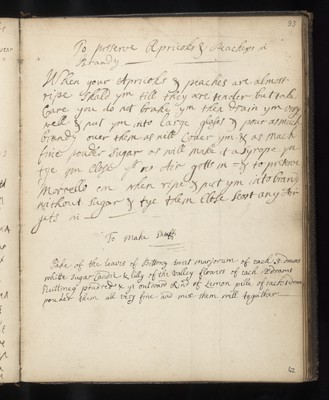 33
To preserve Apricoks & Peaches in
Brandy
When your Apricoks & peaches are almost
ripe Skald ym till they are tender but take
Care you do not brake ym then drain ym very
well & put ym into Large glases & pour as much
brandy over them as will Cover ym & as much
fine pouder Sugar as will make it a Syrope yn
tye ym Close yt no Air getts in & to preserve
Morrello when ripe & put ym into brandy
without Sugar & tye them Close Least any Air
gets in
To make Snuff
Take of the leaves of Bittony sweet marjorum of each
white Sugar Candie & lily of the valley flowers of each
Nuttmeg & ye outward Rind of Lemon pille of each
pouder them all very fine and mix them well togather
42